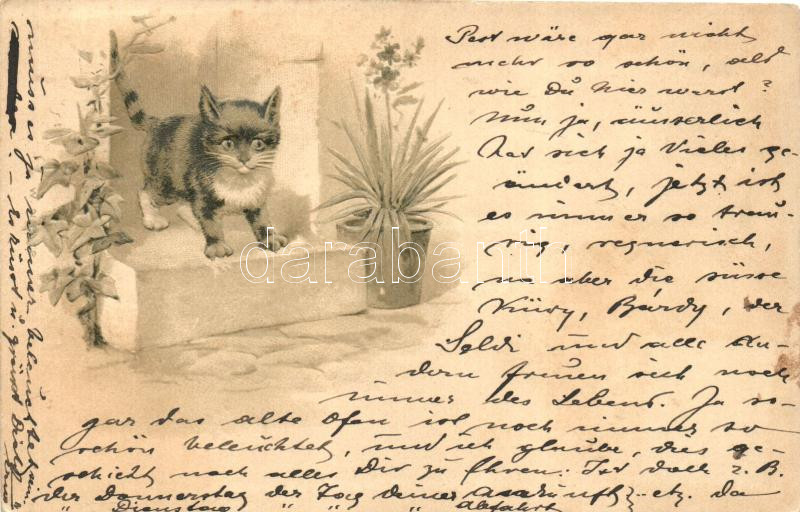 Pest wäre gar nicht
mehr so schön, als
wie Du hier warst?
Nun ja, äusserlich
hat sich ja Vieles ge-
ändert, jetzt ist
es immer so trau-
rig, regnerisch,
na aber die süsse
Bárdy, der
Soldi und alle an-
dern freuen sich noch
immer des Lebens. Ja so-
gar das alte Ofen ist noch immer so
schön beleuchtet, und ich glaube, dies ge-
schieht noch alles Dir zu Ehren: Ist doch z. B.
der Donnerstag der Tag deiner Ankunft, etc. da
" Dienstag " " " Abfahrt
muss es ja immer beleuchtet sein.
! – Es küsst u. grüsst Dich
darabanth